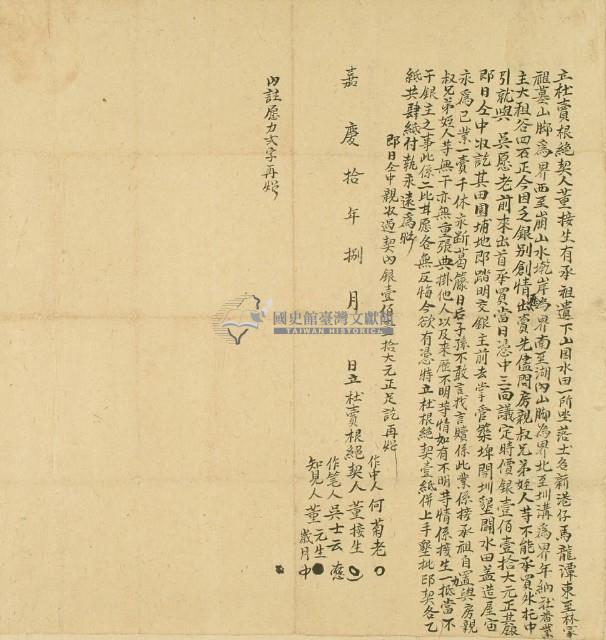 立杜賣根絕契人董接生有承祖遺下山園水田一所坐落土名新港仔馬龍潭東至林家
祖墓山脚為界西至崩山水坑岸為界南至湖內山脚為界北至圳溝為界年納社番業
主大租谷四石正今因乏銀別創情愿出賣先儘問房親叔兄弟姪人等不能承買外托中
引就與吳愿老前來出首承買當日憑中三面議定時價銀壹佰壹拾大元正其銀
即日仝中收訖其田園埔地即踏明交銀主前去掌管築埤開圳墾闢水田蓋造屋宅
永為己業一賣千休永斷葛籐日后子孫不敢言找言贖係此業係接承祖自置與房親
叔兄弟姪人等無干亦無重張典掛他人以及來歷不明等情如有不明等情係接生一力抵當不
干銀主之事此係二比甘愿各無反悔今欲有憑特立杜賣根絕契壹紙併上手墾批印契各乙
紙共肆紙付執永遠為炤
即日仝中親收過契內銀壹佰壹拾大元正足訖再炤
嘉慶拾年捌月 日立杜賣根絕契人董接生
作中人何菊老
作筆人吳士云
知見人董元生
歲月
內註愿力弍字再炤
國史館臺灣文獻館
TAIWAN HISTORICA